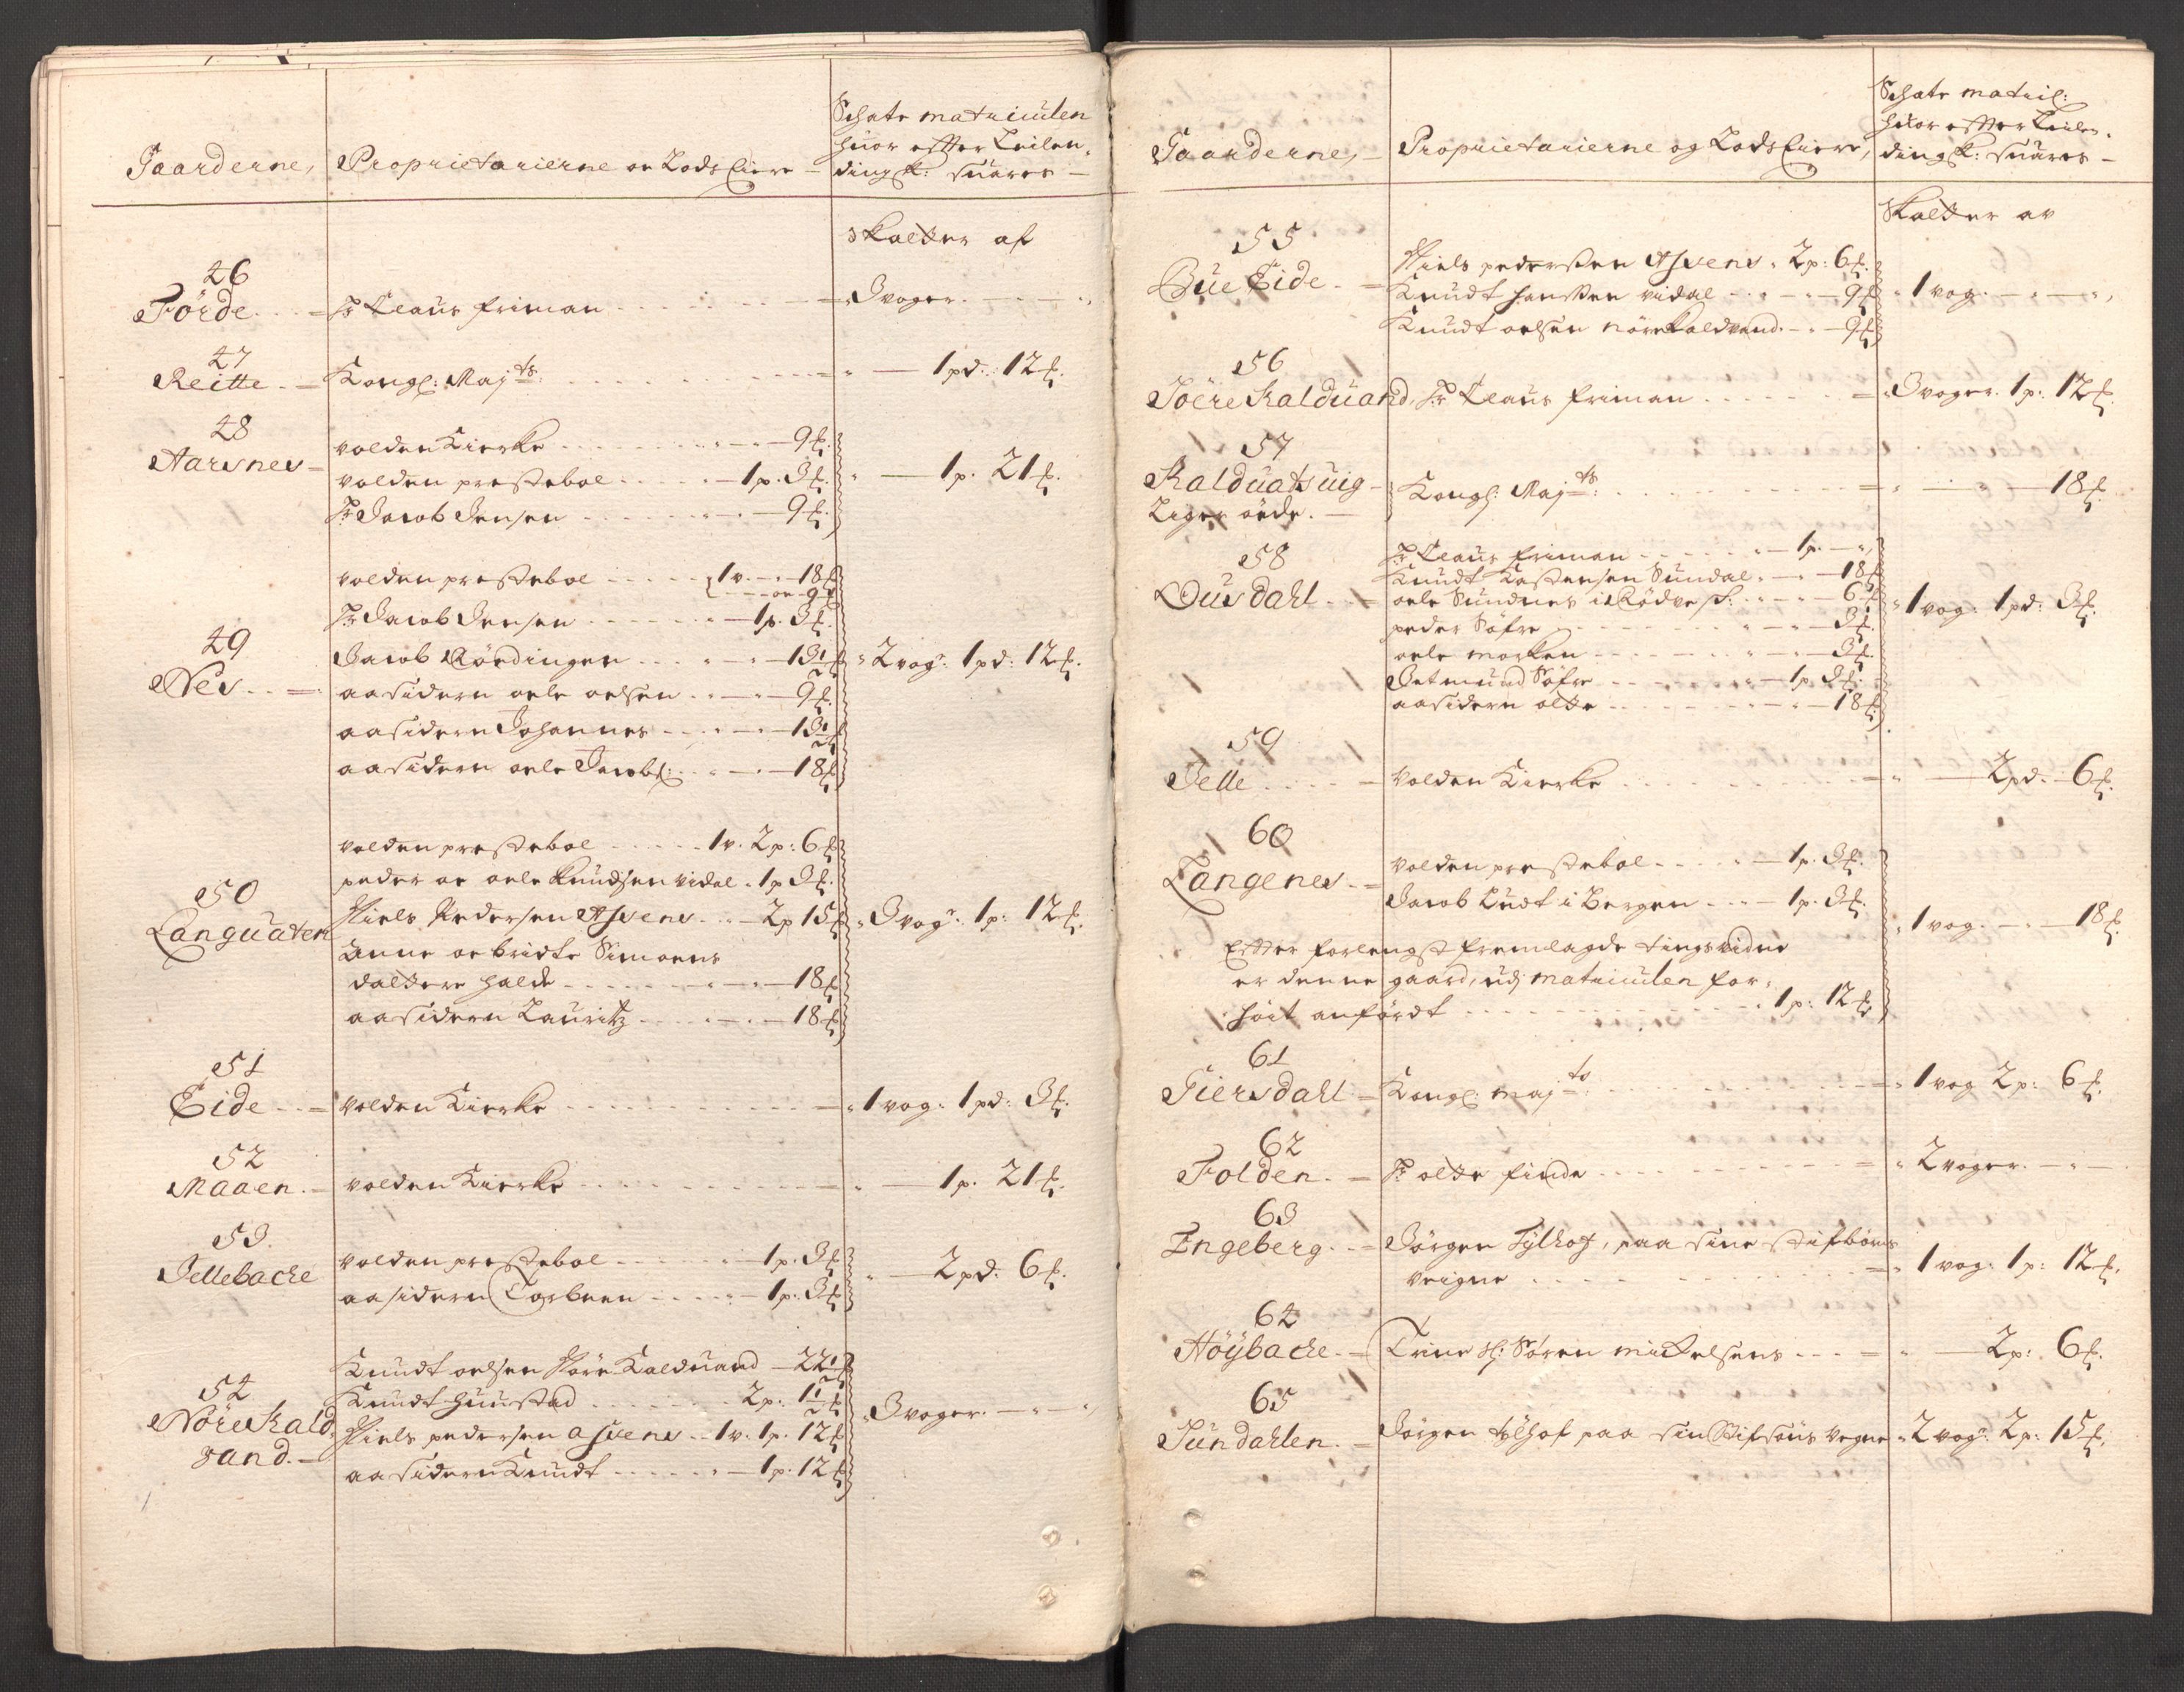 Gaarderne,
Proprietarierne oc Lods Eiere -
Schate matriculen
huor effter Leilen-
ding k: suares -
skalder af
46
Förde - Hr Claus friman - 3 voger
47
Reitte - Kongl: Majts: - 1 pd: 12
48
Aarsnes -
volden Kierke - 9
volden prestebol - 1p. 3
Hr Jacob Jensen - 9
1p. 21
49
Nes -
volden prestebol - 1v. - 18
oc 9
Hr Jacob Jensen - 1p. 3
Jacob Rördingen - 13½
aasidern oele oelsen - 9
aasidern Johannes - 13½
aasidern oele Jacobs: - 18
2 vogr: 1 pd: 12
50
Languaten
volden prestebol - 1v. 2p: 6
peder oc oele Knudsen vidal - 1p 3
Niels Pedersen Asvens - 2p 15
Anne oc bridte Simoens
daltere halde - 18
aasidern Lauritz - 18
3 vogr: 1p: 12
51
Eide - volden Kierke - 1 vog: 1 pd: 3
52
Maaen - volden Kierke - 1p. 21
53
Jellebache
volden prestebol - 1p. 3
aasidern Torbeen - 1p. 3
2 pd: 6
54
Nöre Kald
vand -
Knudt oelsen Nöre Kalduand - 22½
Knudt Huustad - 2p: 1½
Niels pedersen Asvens - 1v. 1p. 12
aasidern Knudt - 1p. 12
3 voger
Gaarderne, -
Proprietarierne og Lods Eiere,
Schate matricl:
huor effter Leilen-
ding k: suares -
Skalder av
55
Bue Eide -
Niels pedersen Asvens - 2p: 6
Knudt hansen vidal - 9
Knudt oelsen nöre Kaldvand - 9
1 vog
56
Söere Kalduand, Hr Claus friman - 3 voger. 1p: 12
57
Kalduatsuig -
Liger öede. -
Kongl: Majts: - 18
58
Ousdahl -
Hr Claus friman - 1p.
Knudt Castensen Sundal - 18
oele Sundnes i Rödvest: - 6
peder Söfre - 3
oele morken - 3
Detmund Söfre - 1p 3
aasidern olde - 18
1 vog: 1 pd: 3
59
Jelle - volden Kierke - 2 pd. 6
60
Langenes -
volden prestebol - 1p. 3
Jacob Ludt i Bergen - 1p. 3
Effter forlengst fremlagde tingsvidne
er denne gaard, udj matriculen for-
höit anfördt - 1p: 12
1 vog. 18
61
Giersdahl - Kongl: Majts: - 1 vog 2p: 6
62
Folden - Hr olde finde - 2 voger
63
Engeberg - Jörgen Tylhof, paa sine stifbörns
veigne - 1 vog: 1p: 12
64
Höybache - Trine Sl: Sören mickelsens - 2p: 6
65
Sundahlen - Jörgen tylhof paa sin Stifsöns vegne - 2 vogr: 2p: 15